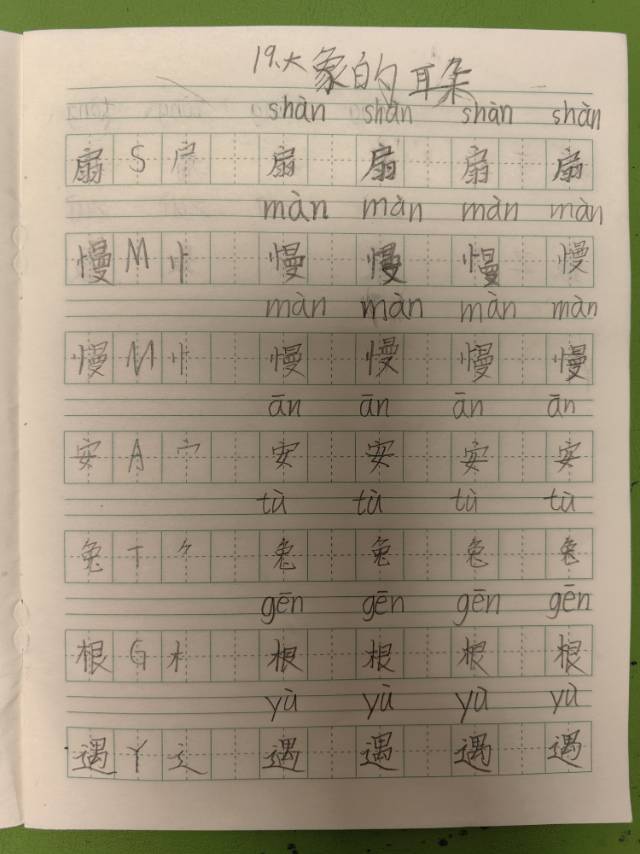 19.大象的耳朵
shàn shàn shàn shàn
扇 S 户 扇 扇 扇 扇
màn màn màn màn
慢 M 忄 慢 慢 慢 慢
màn màn màn màn
慢 M 忄 慢 慢 慢 慢
ān ān ān ān
安 A 宀 安 安 安 安
tù tù tù tù
兔 T ⺈ 兔 兔 兔 兔
gēn gēn gēn gēn
根 G 木 根 根 根 根
yù yù yù yù
遇 Y 辶 遇 遇 遇 遇